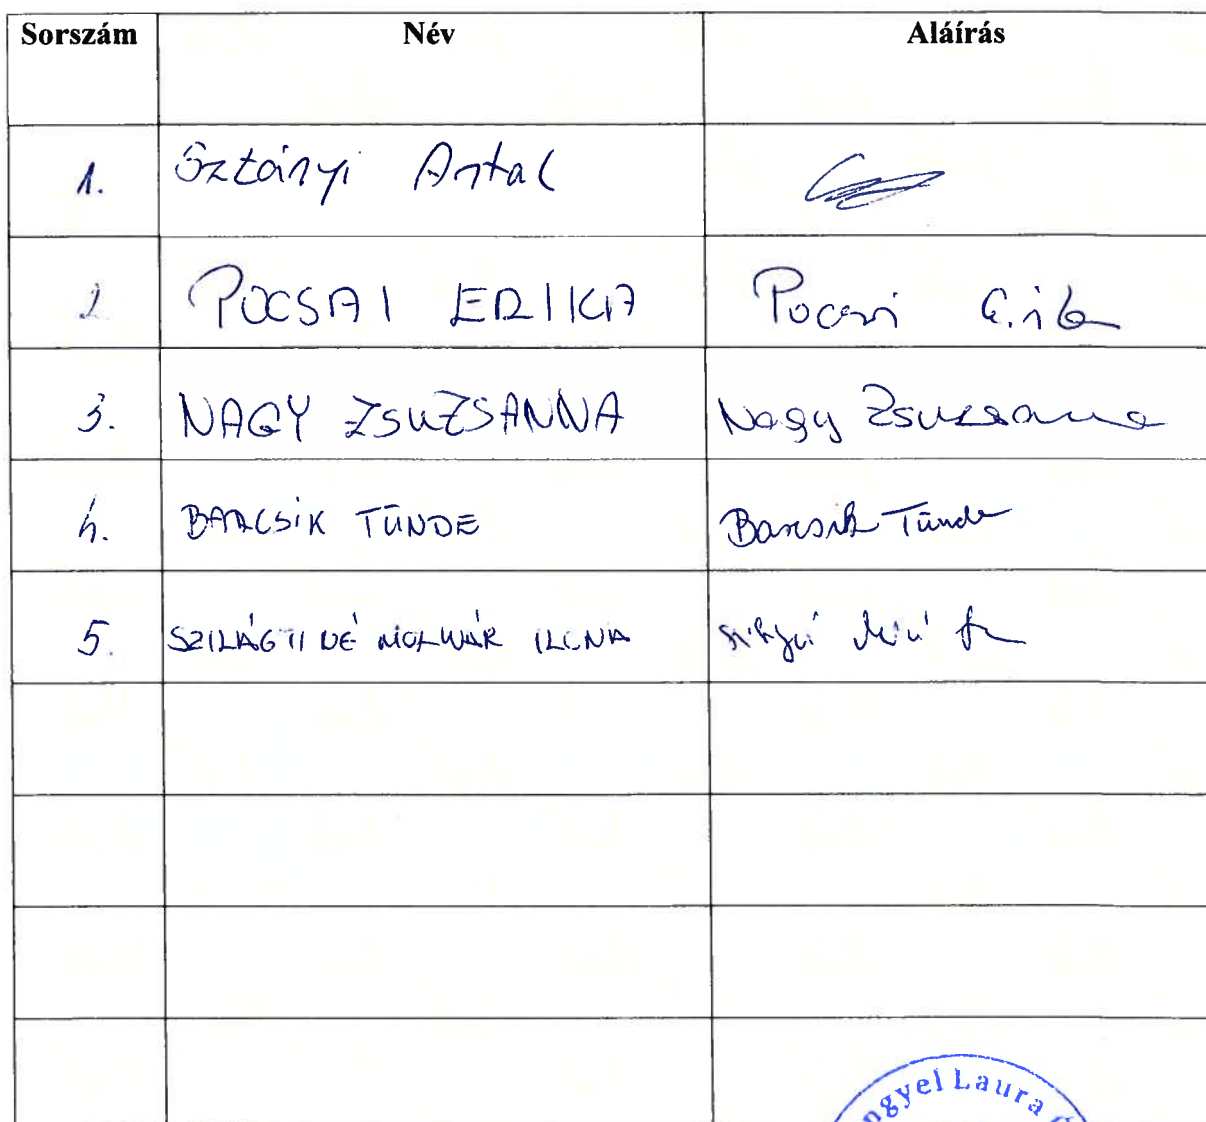 Sorszám Név Aláírás
1. Sztányi Antal
2 POCSAI ERIKA Pocsai Erika
3. NAGY ZSUZSANNA Nagy Zsuzsanna
4. BARCSIK TÜNDE Barcsik Tünde
5. SZILÁGYINÉ MOLNÁR ILONA
ngyel Laura